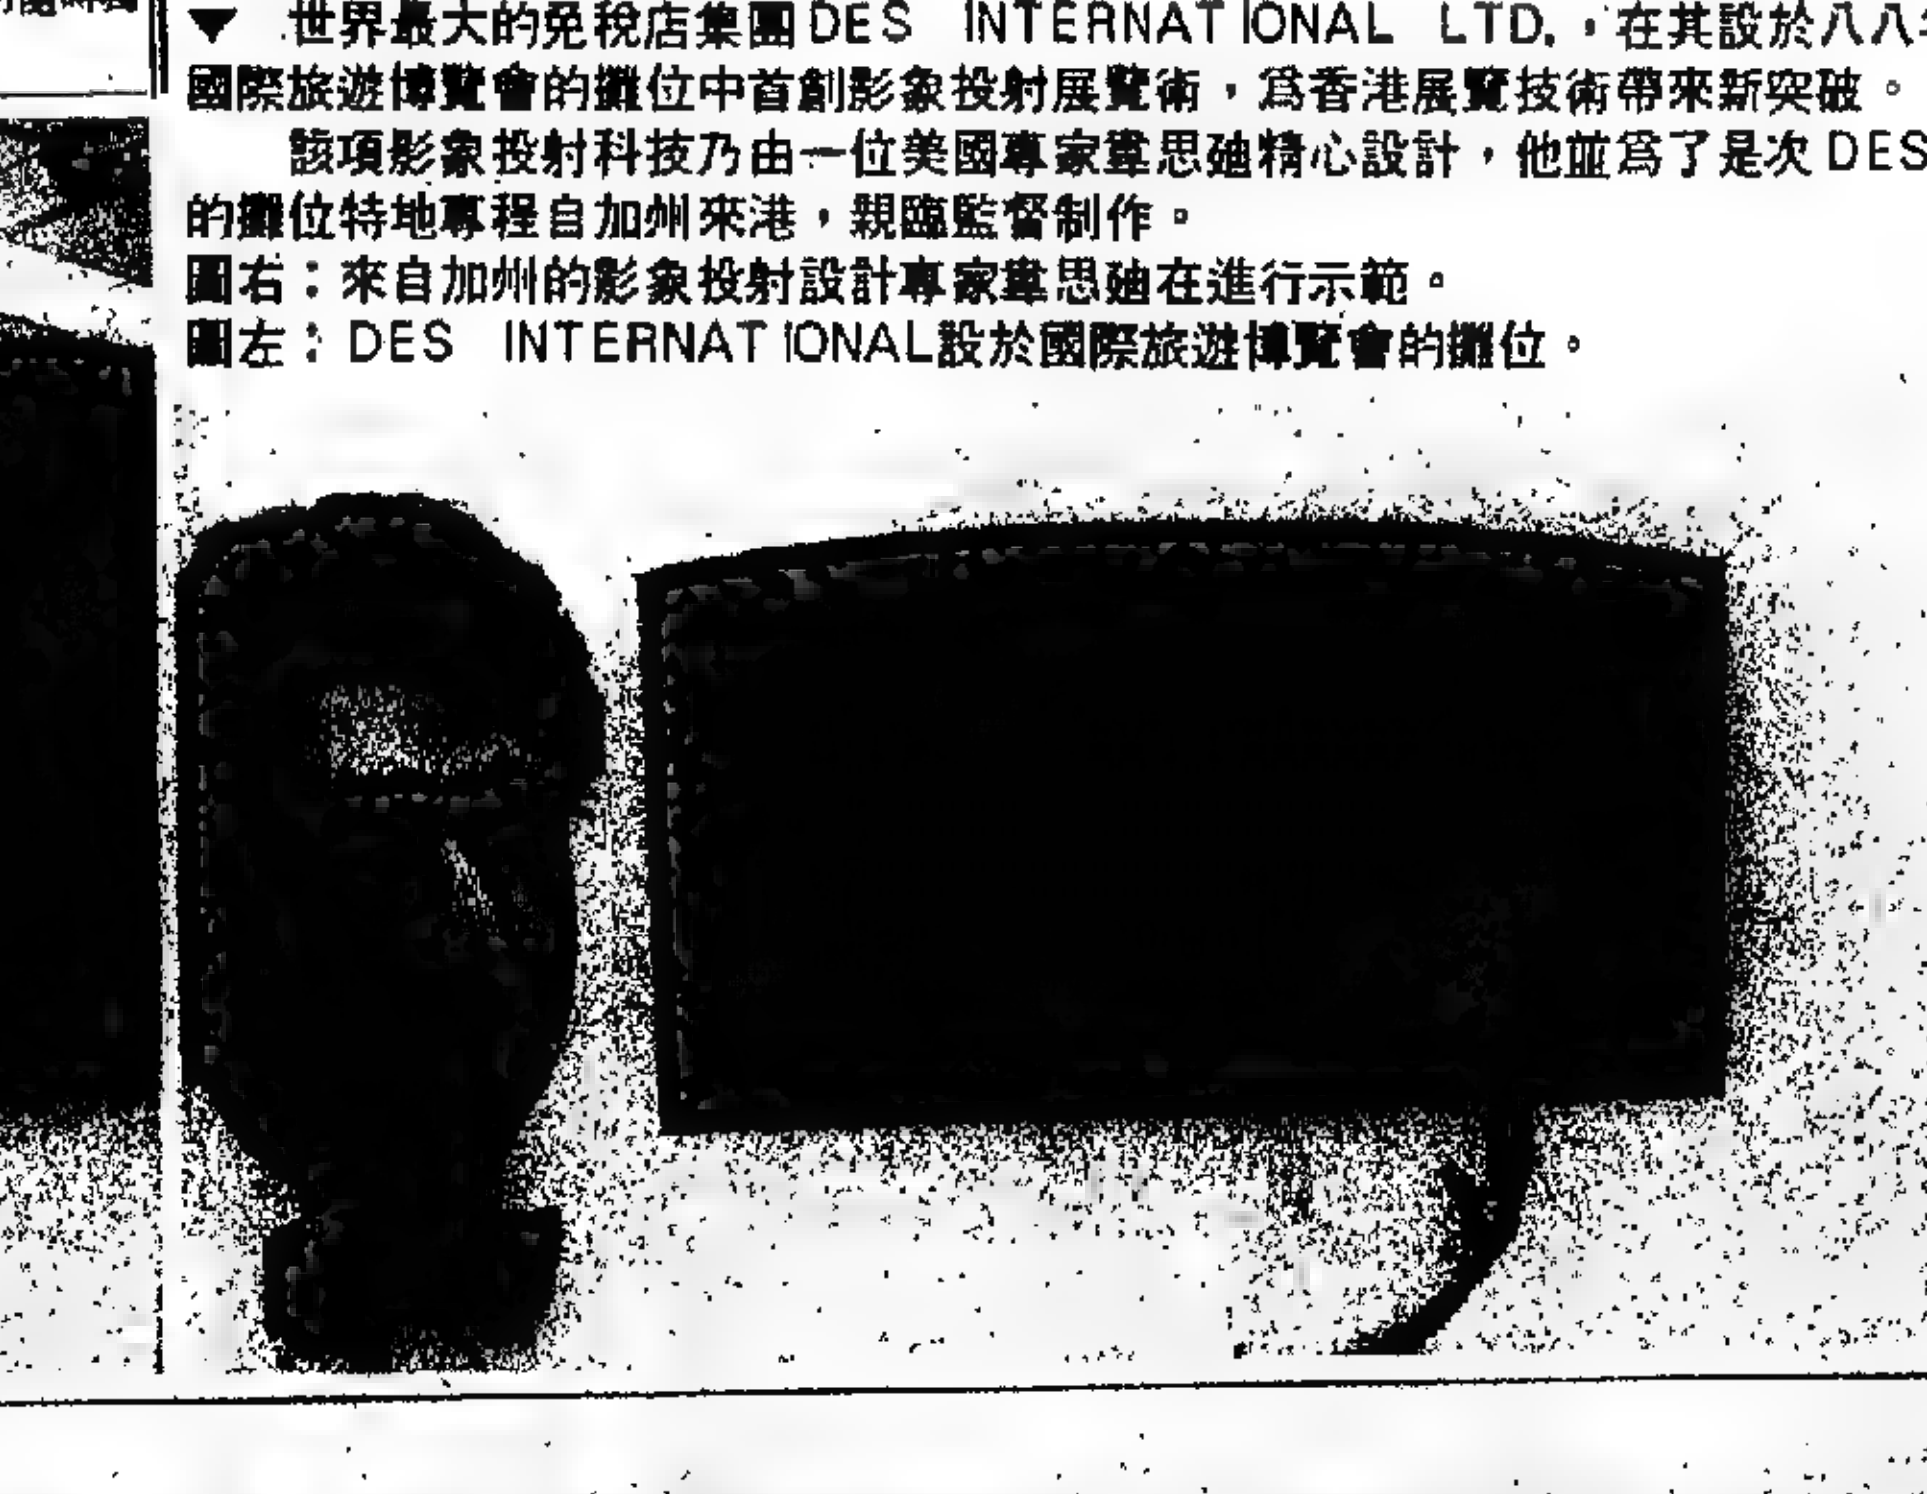 ▼ 世界最大的免稅店集團DES INTERNATIONAL LTD.，在其設於八八
國際旅遊博覽會的攤位中首創影象投射展覽術，爲香港展覽技術帶來新突破。
該項影象投射科技乃由一位美國專家韋思廸精心設計，他並爲了是次DES
的攤位特地專程自加州來港，親臨監督制作。
圖右：來自加州的影象投射設計專家韋思廸在進行示範。
圖左：DES INTERNATIONAL設於國際旅遊博覽會的攤位。